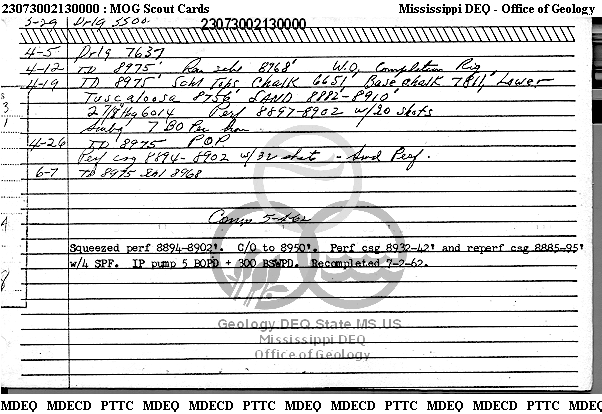 23073002130000 : MOG Scout Cards Mississippi DEQ - Office of Geology
3-29 Drlg 5500 23073002130000
4-5 Drlg 7637
4-12 TD 8975' Ran schl 8968' W.O. Completion Rig
4-19 TD 8975' Schl Tops Chalk 6651' Base chalk 7811, Lower
Tuscaloosa 8756' SAND 8882'-8910'
2 7/8" @ 6014 Perf 8897-8902 w/20 shots
Swbg 7 BO Per hour
4-26 TD 8975 POP
Perf csg 8894-8902 w/32 shots - Swd Perf.
6-7 TD 8975 8968
Comp 5-1-62
Squeezed perf 8894-8902'. C/O to 8950'. Perf csg 8932-42' and reperf csg 8885-95'
w/4 SPF. IP pump 5 BOPD + 300 BSWPD. Recompleted 7-2-62.
Geology.DEQ.State.MS.US
Mississippi DEQ
Office of Geology
MDEQ MDECD PTTC MDEQ MDECD PTTC MDEQ MDECD PTTC MDEQ MDECD PTTC MDEQ